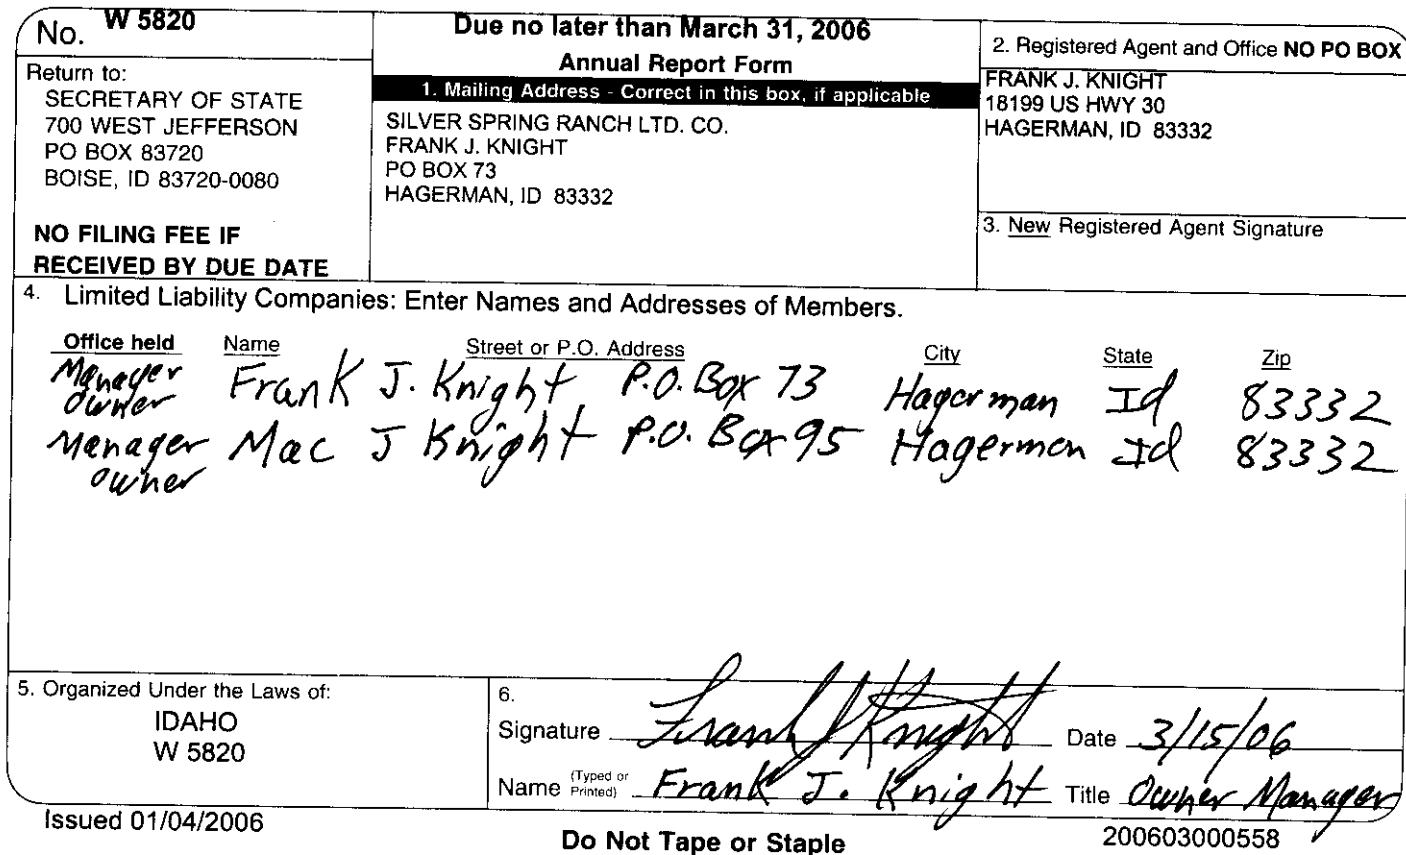 No. W 5820
Return to:
SECRETARY OF STATE
700 WEST JEFFERSON
PO BOX 83720
BOISE, ID 83720-0080
NO FILING FEE IF
RECEIVED BY DUE DATE
Due no later than March 31, 2006
Annual Report Form
1. Mailing Address - Correct in this box, if applicable
SILVER SPRING RANCH LTD. CO.
FRANK J. KNIGHT
PO BOX 73
HAGERMAN, ID 83332
2. Registered Agent and Office NO PO BOX
FRANK J. KNIGHT
18199 US HWY 30
HAGERMAN, ID 83332
3. New Registered Agent Signature
4. Limited Liability Companies: Enter Names and Addresses of Members.
Office held Name Street or P.O. Address City State Zip
Manager Frank J. Knight P.O. Box 73 Hagerman Id 83332
owner
Manager Mac J Knight P.O. Box 95 Hagerman Id 83332
owner
5. Organized Under the Laws of:
IDAHO
W 5820
6.
Signature Frank J Knight Date 3/15/06
Name (Typed or Printed) Frank J. Knight Title Owner Manager
Issued 01/04/2006
Do Not Tape or Staple
200603000558